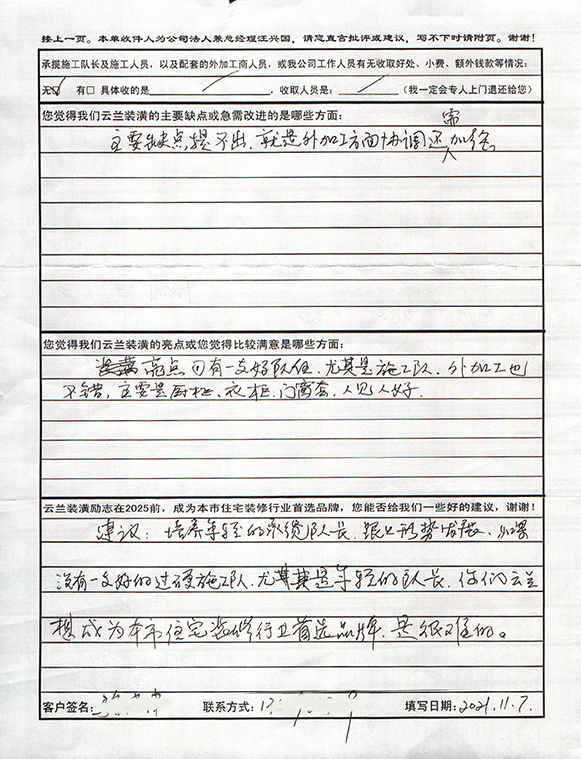 接上一页。本单收件人为公司法人兼总经理汪兴国，请您直言批评或建议，写不下时请附页。谢谢！
承揽施工队长及施工人员，以及配套的外加工商人员，或我公司工作人员有无收取好处、小费、额外钱款等情况：
无☑ 有□ 具体收的是 ，收取人员是： （我一定会专人上门退还给您）
您觉得我们云兰装潢的主要缺点或急需改进的是哪些方面：
主要缺点提不出，就是外加工方面协调还需加经
您觉得我们云兰装潢的亮点或您觉得比较满意是哪些方面：
亮点 有一支好队伍，尤其是施工队，外加工也
不错，主要是厨柜、衣柜、门窗套，人见人好．
云兰装潢励志在2025前，成为本市住宅装修行业首选品牌，您能否给我们一些好的建议，谢谢！
建议：培养年轻的 队长，跟上形势发展、如果
没有一支好的过硬施工队，尤其其是年轻的队长，你们云兰
想成为本市住宅装修行业首选品牌，是很难的。
客户签名： 联系方式： 填写日期：2021.11.7.